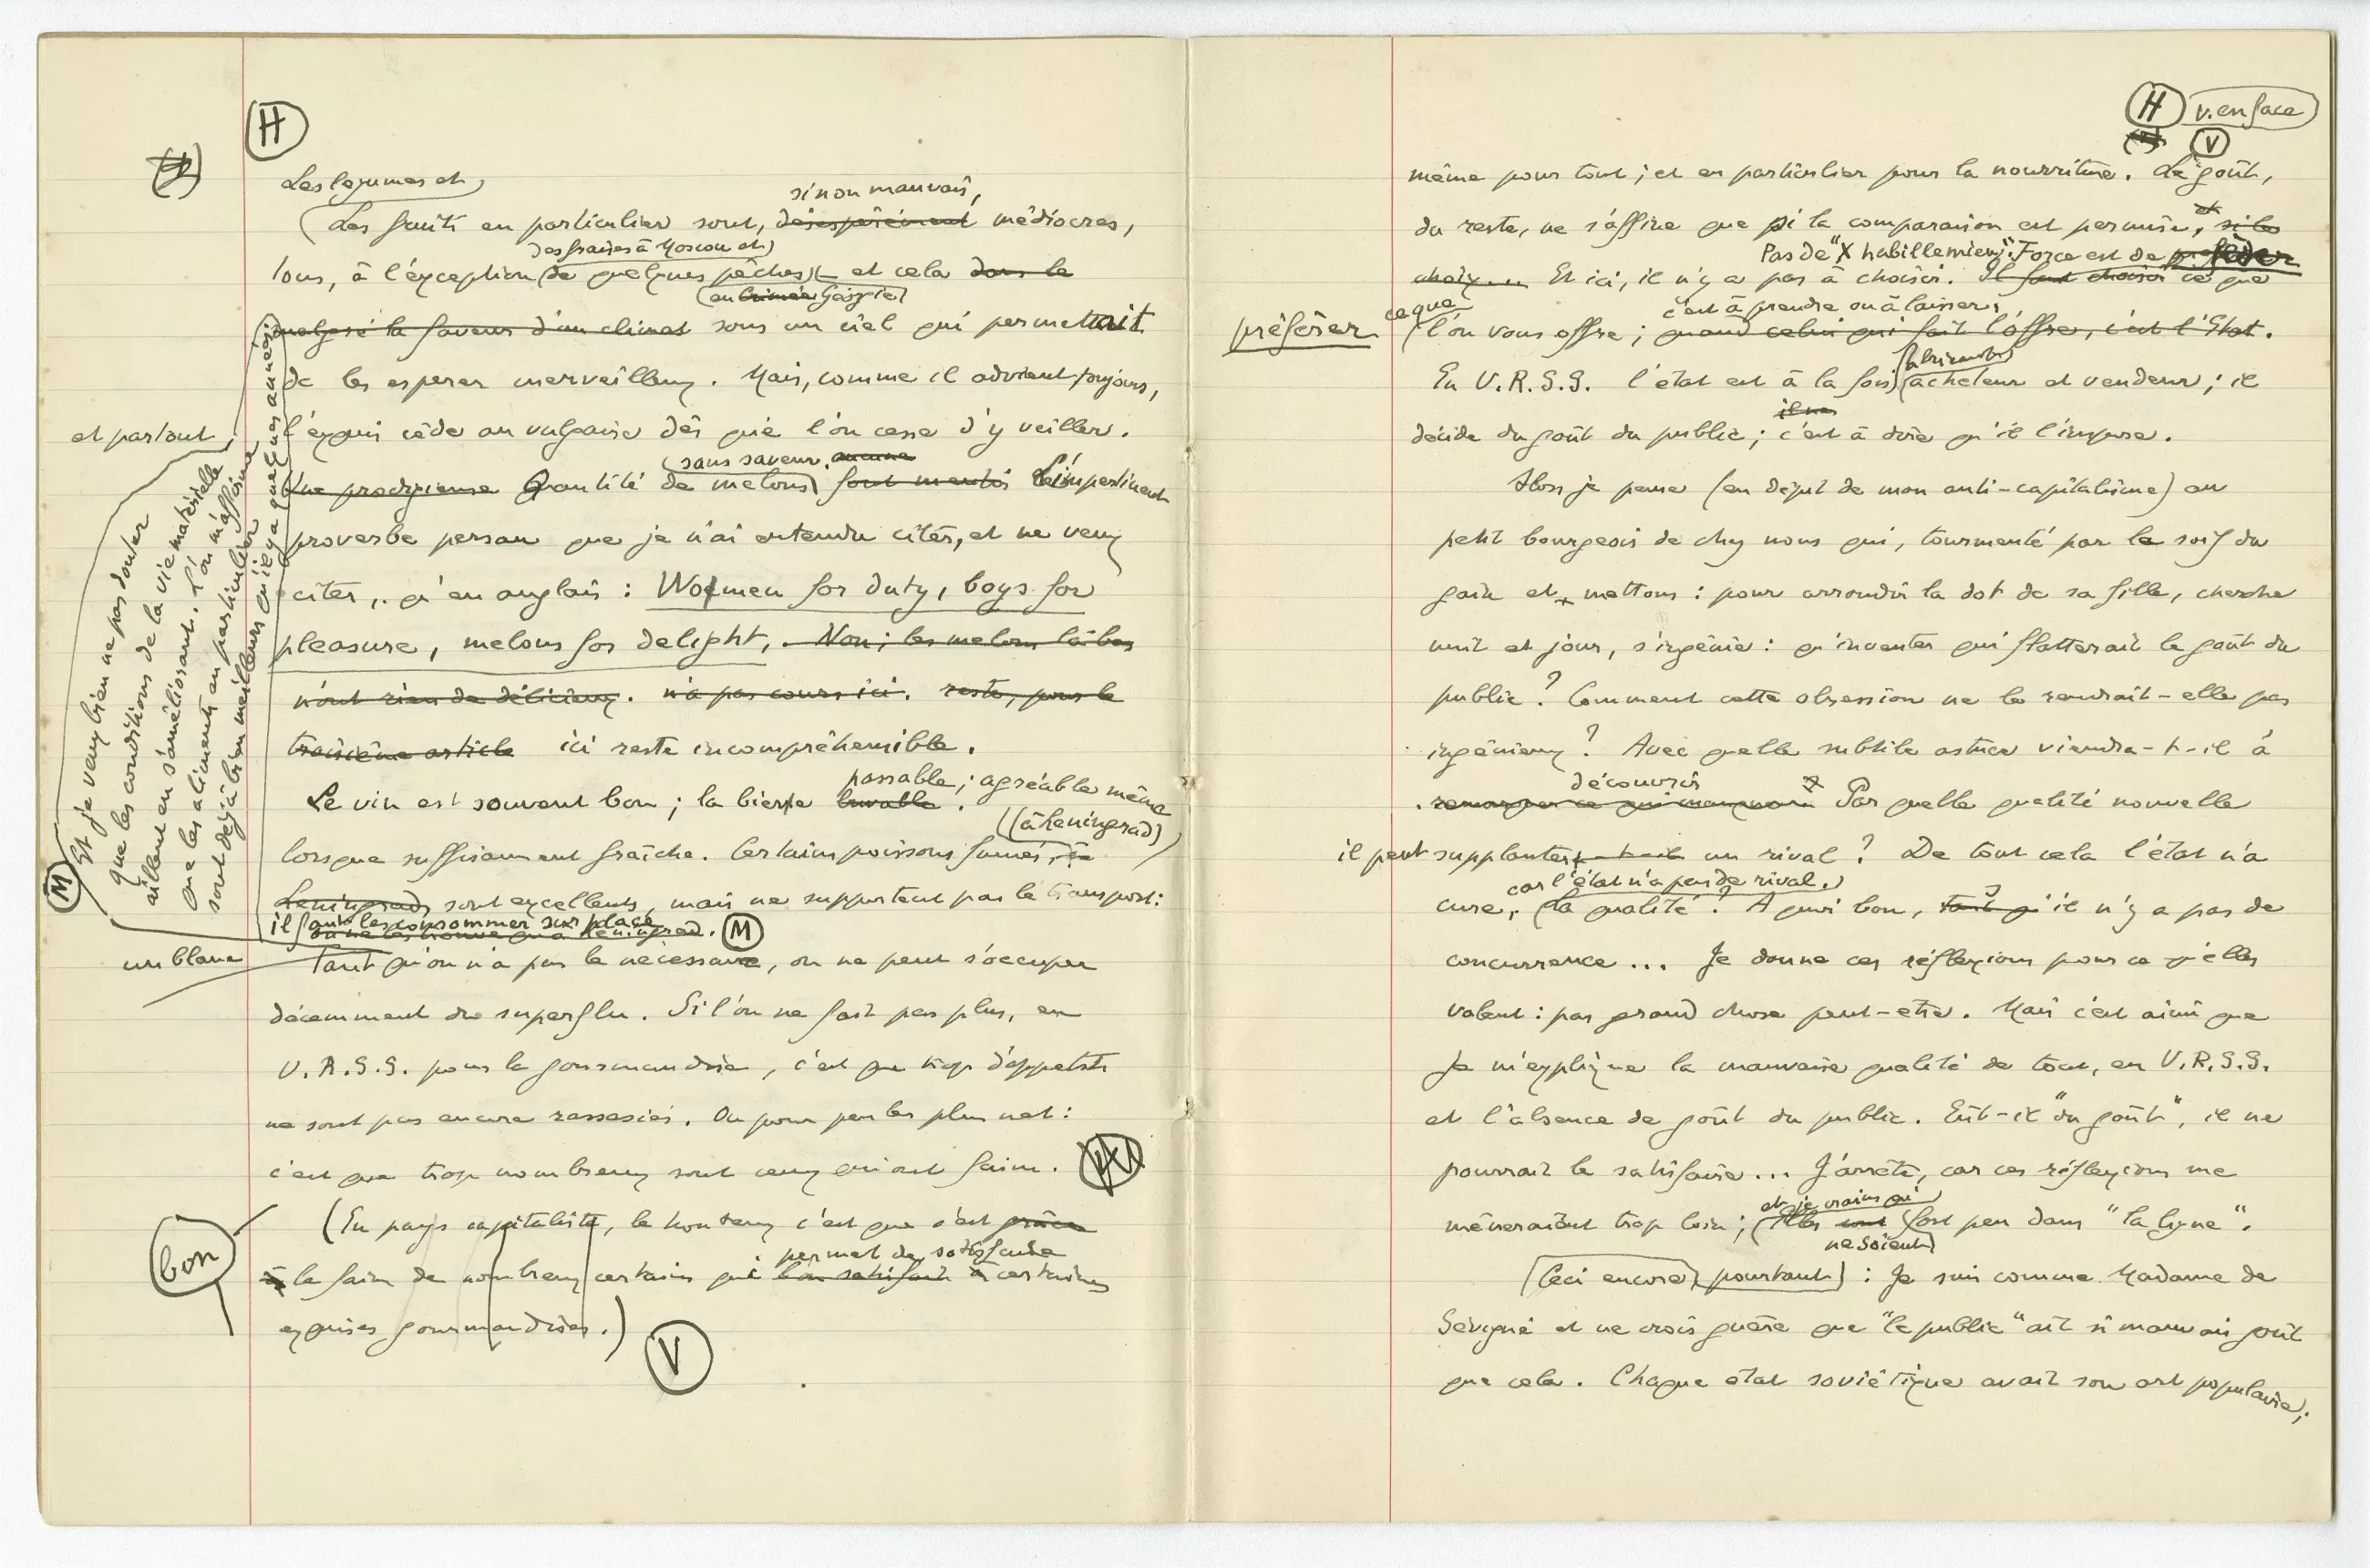 H
Les légumes et
si non mauvais,
(Les fruits en particulier sont, désespérément médiocres,
des fraises à Moscou et
tous, à l'exception de quelques pêches et cela dans le
(en Crimée Géorgie)
malgré la faveur d'un climat sous un ciel qui permettait
de les espérer merveilleux. Mais, comme il advient toujours,
et partout,
l'exquis cède au vulgaire dès que l'on cesse d'y veiller.
sans saveur. aucune
Une prodigieuse Quantité de melons sont mentis L'impertinent
proverbe persan que je n'ai entendu citer, et ne veux
citer, qu'en anglais : Women for duty, boys for
pleasure, melons for delight, . Non ; les melons là-bas
n'ont rien de délicieux. n'a pas cours ici. reste, pour le
troisième article ici reste incompréhensible.
passable ; agréable même
Le vin est souvent bon ; la bière buvable .
(à Leningrad)
lorsque suffisamment fraîche. Certains poissons fumés, à
Leningrad, sont excellents, mais ne supportent pas le transport :
il faut les consommer sur place
on ne les trouve qu'à Leningrad. M
M Et je veux bien ne pas douter
que les conditions de la vie matérielle
aillent en s'améliorant. L'on m'affirme
que les aliments en particulier
sont déjà bien meilleurs qu'il y a quelques années
un blanc
Tant qu'on n'a pas le nécessaire, on ne peut s'occuper
décemment du superflu. Si l'on ne fait pas plus, en
U.R.S.S. pour la gourmandise, c'est que trop d'appétits
ne sont pas encore rassasiés. Ou pour parler plus net :
c'est que trop nombreux sont ceux qui ont faim.
bon
(En pays capitaliste, le honteux c'est que c'est grâce
permet de satisfaire
à la faim de nombreux certains que l'on satisfait à certaines
exquises gourmandises.)
V
H v. en face
V
même pour tout ; et en particulier pour la nourriture. Le goût,
du reste, ne s'affine que si la comparaison est permise, et si le
Pas de "X habille mieux". Force est de préférer
choix ... Et ici, il n'y a pas à choisir. Il faut choisir ce que
préférer ce que
c'est à prendre ou à laisser ;
l'on vous offre ; quand celui qui fait l'offre, c'est l'Etat.
fabricant,
En U.R.S.S. l'état est à la fois acheteur et vendeur ; il
il ne
décide du goût du public ; c'est à dire qu'il l'impose.
Alors je pense (en dépit de mon anti-capitalisme) au
petit bourgeois de chez nous qui, tourmenté par la soif du
gain et, mettons : pour arrondir la dot de sa fille, cherche
nuit et jour, s'ingénie : qu'inventer qui flatterait le goût du
public ? Comment cette obsession ne le rendrait-elle pas
ingénieux ? Avec quelle subtile astuce viendra-t-il à
découvrir
remarquer ce qui manquait Par quelle qualité nouvelle
il peut supplanter un rival ? De tout cela l'état n'a
car l'état n'a pas de rival.
cure, La qualité ? A quoi bon, s'il n'y a pas de
concurrence ... Je donne ces réflexions pour ce qu'elles
valent : pas grand chose peut-être. Mais c'est ainsi que
je m'explique la mauvaise qualité de tout, en U.R.S.S.
et l'absence de goût du public. Eût-il "du goût", il ne
pourrait le satisfaire ... J'arrête, car ces réflexions me
et je crains qu'
mèneraient trop loin ; elles sont fort peu dans "la ligne".
ne soient
(Ceci encore, pourtant) : Je suis comme Madame de
Sévigné et ne crois guère que "le public" ait si mauvais goût
que cela. Chaque état soviétique avait son art populaire ;